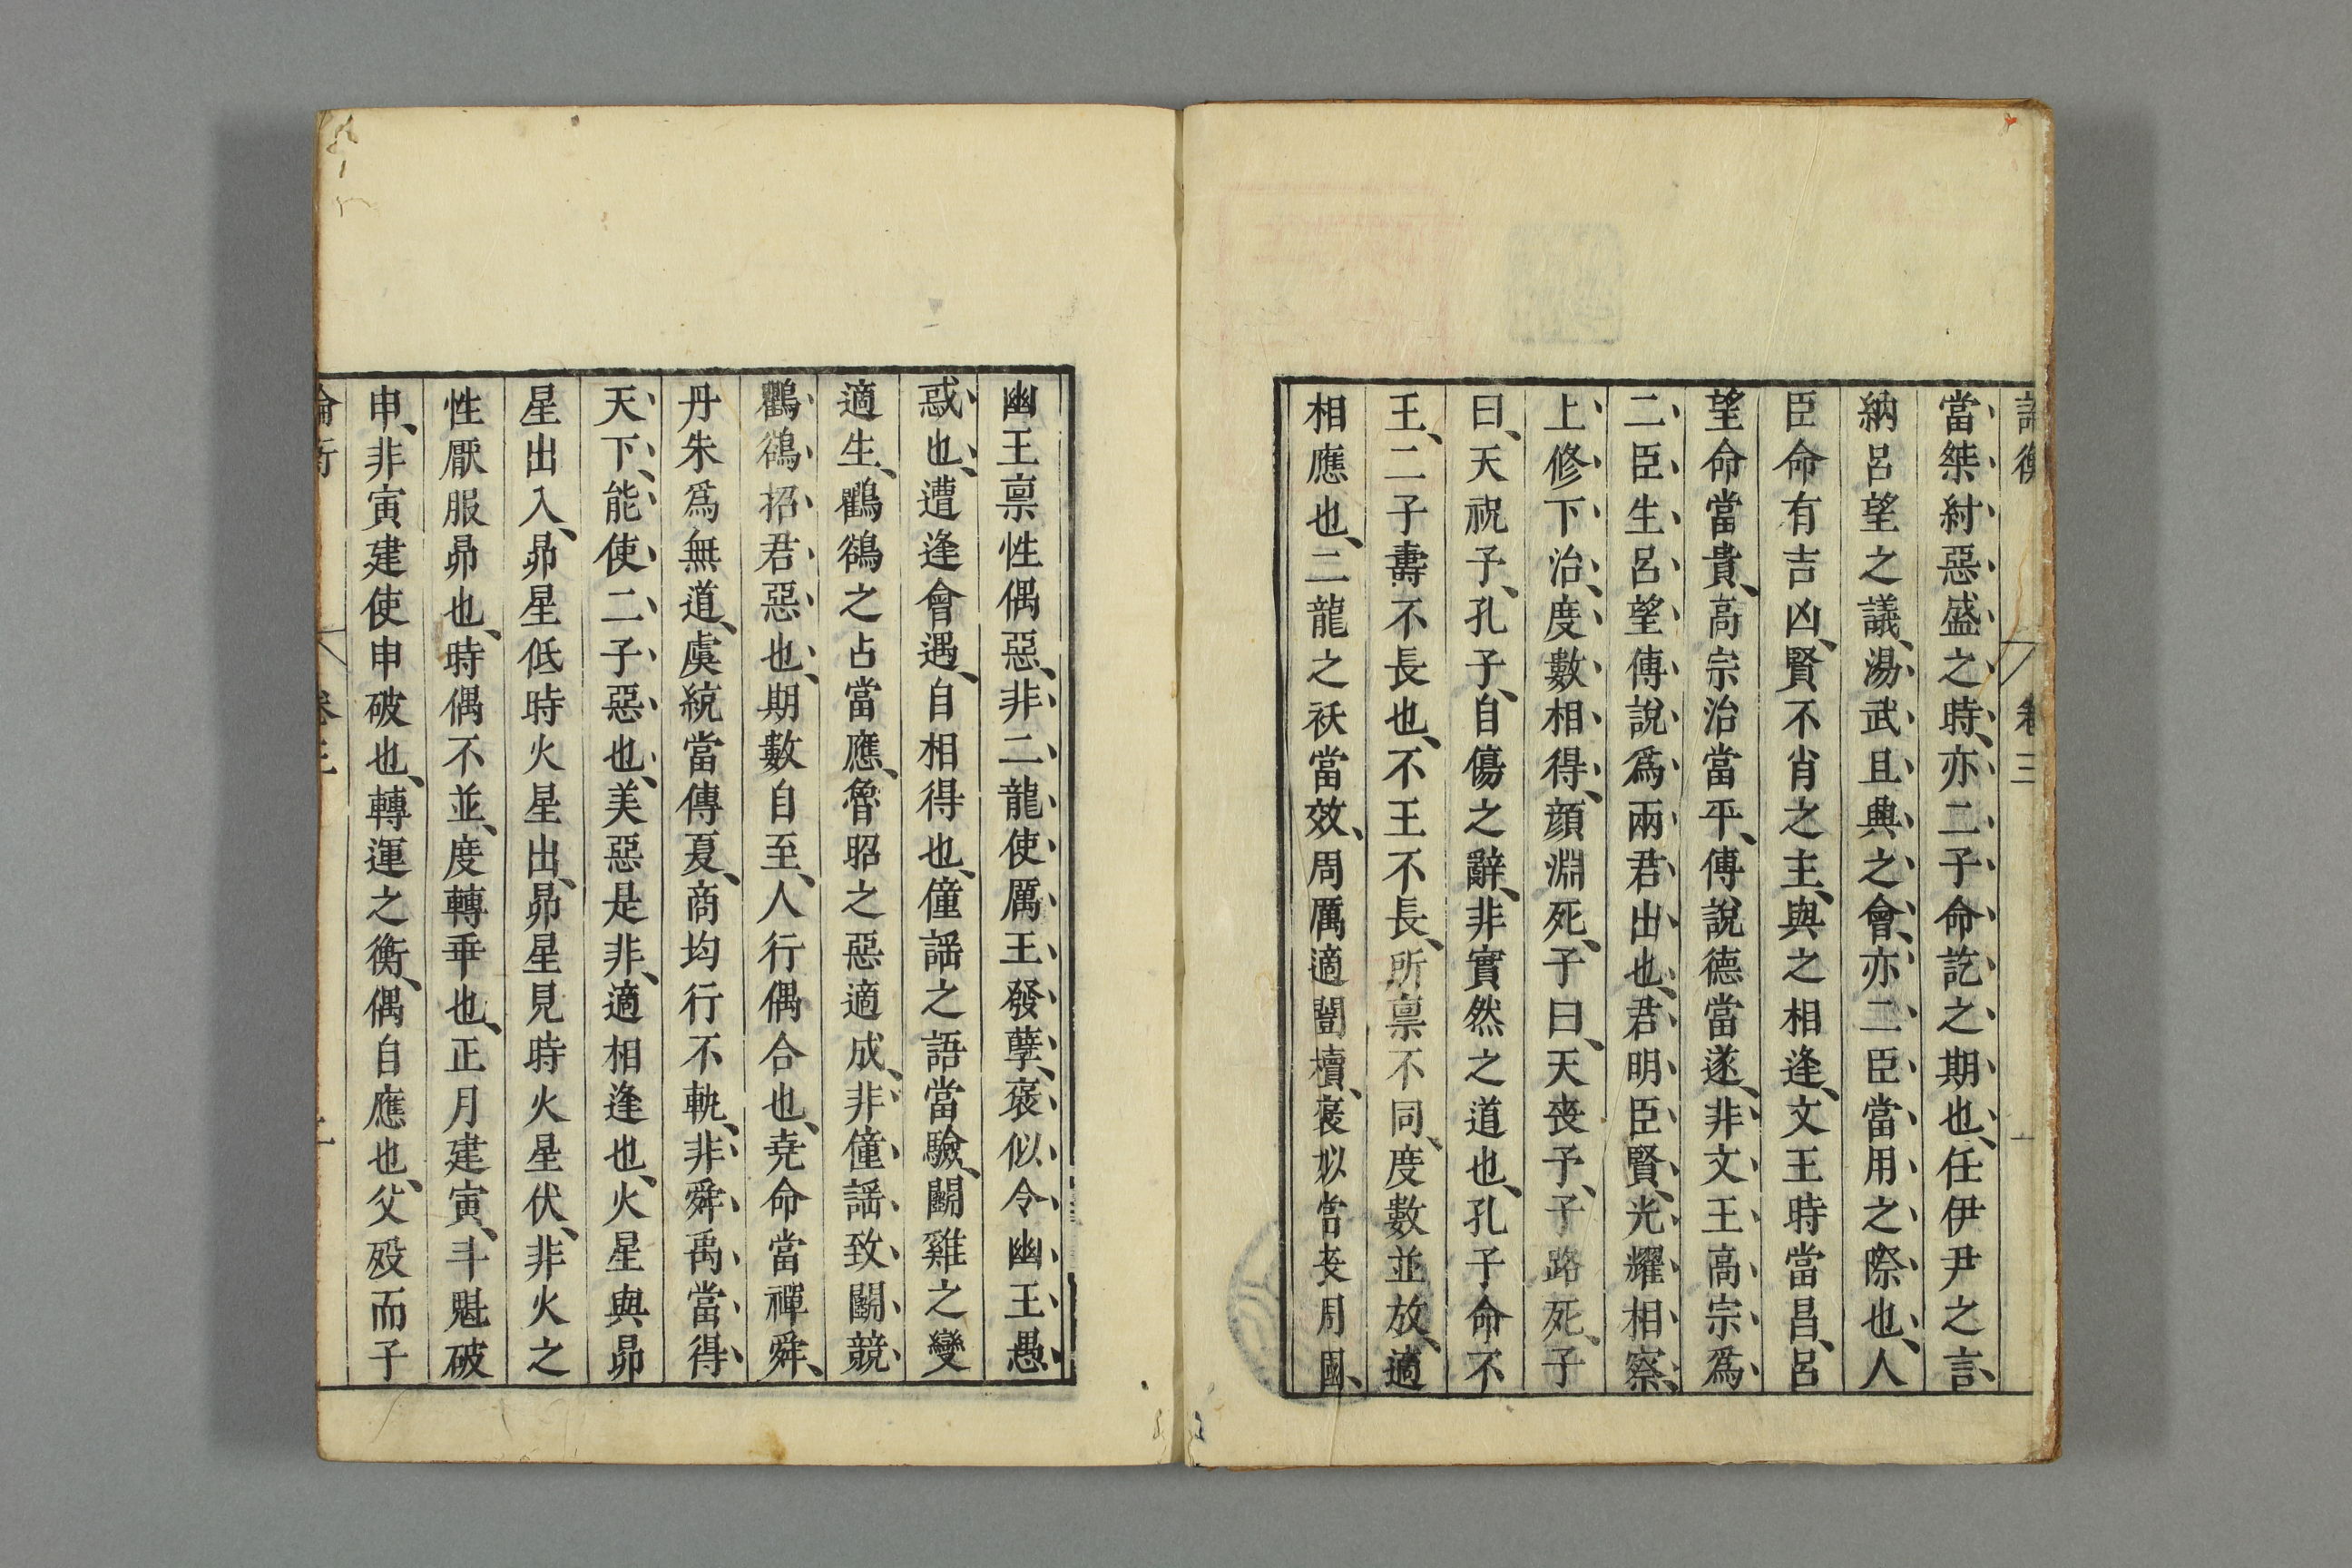 論衡 卷三 一
當桀紂惡盛之時、亦二子命訖之期也、任伊尹之言、
納呂望之議、湯武且興之會、亦二臣當用之際也、人
臣命有吉凶、賢不肖之主、與之相逢、文王時當昌、呂
望命當貴、高宗治當平、傅說德當遂、非文王高宗爲
二臣生呂望傅說爲兩君出也、君明臣賢、光耀相察、
上修下治、度數相得、顔淵死、子曰、天丧予、子路死、子
曰、天祝予、孔子、自傷之辭、非實然之道也、孔子命不
王、二子壽不長也、不王不長、所禀不同、度數並放、適
相應也、二龍之祅當效、周厲適闓櫝、褒姒當丧周國、
幽王禀性偶惡、非二龍使厲王發孽、褒似令幽王愚
惑也、遭逢會遇、自相得也、僮謡之語當驗、鬭雞之變
適生、鸛鵒之占當應、魯昭之惡適成、非僮謡致鬭競
鸛鵒招君惡也、期數自至、人行偶合也、尭命當禪舜、
丹朱爲無道、虞統當傳夏、商均行不軌、非舜禹當得
天下、能使二子惡也、美惡是非、適相逢也、火星與昴
星出入、昴星低時火星出、昴星見時火星伏、非火之
性厭服昴也、時偶不並、度轉乖也、正月建寅、斗魁破
申、非寅建使申破也、轉運之衡、偶自應也、父殁而子
論衡 卷三